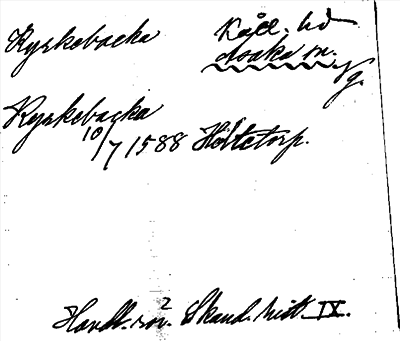 Kyrkebacka
Kåll. hd
Acaka sn.
Vg.
Kyrkebacka
10/7 1588 Höltetorp.
Handl. rör. Skand. hist. IX.
2